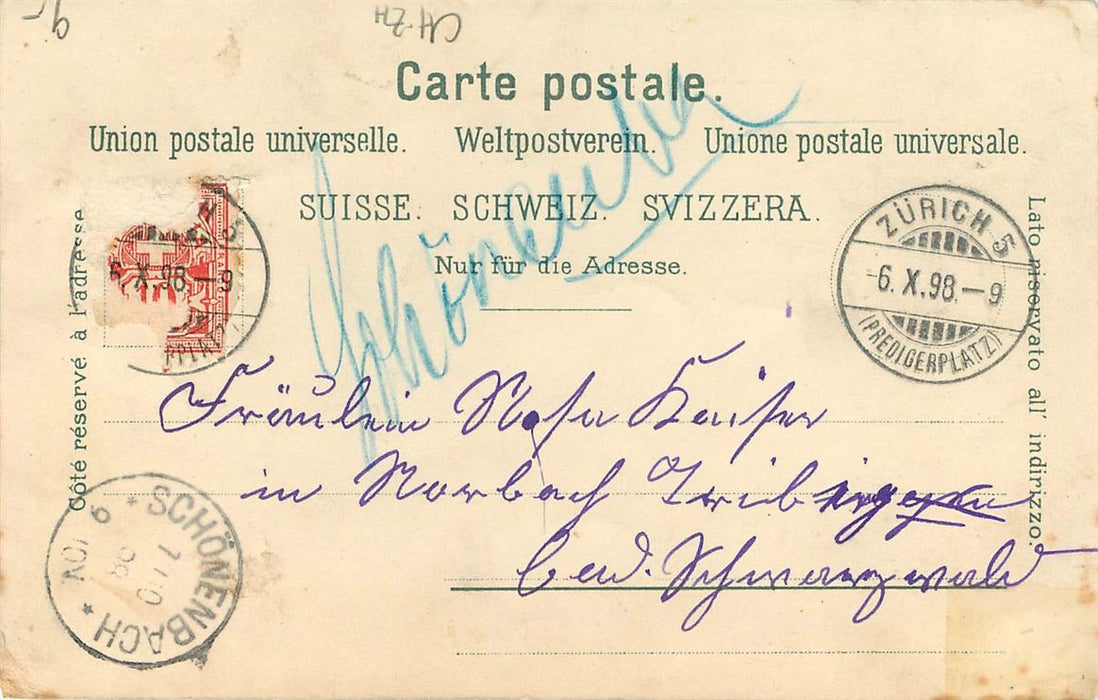 CH-ZH
Carte postale.
Union postale universelle. Weltpostverein. Unione postale universale.
SUISSE. SCHWEIZ. SVIZZERA.
Nur für die Adresse.
Côté réservé à l'adresse
Lato riservato all' indirizzo.
Schönenba
6.X.98.–9
ZÜRICH 5
–6.X.98.–9
(PREDIGERPLATZ)
Fräulein Rosa Kaiser
in Rorbach
bad. Schwarzwald
* SCHÖNENBACH *